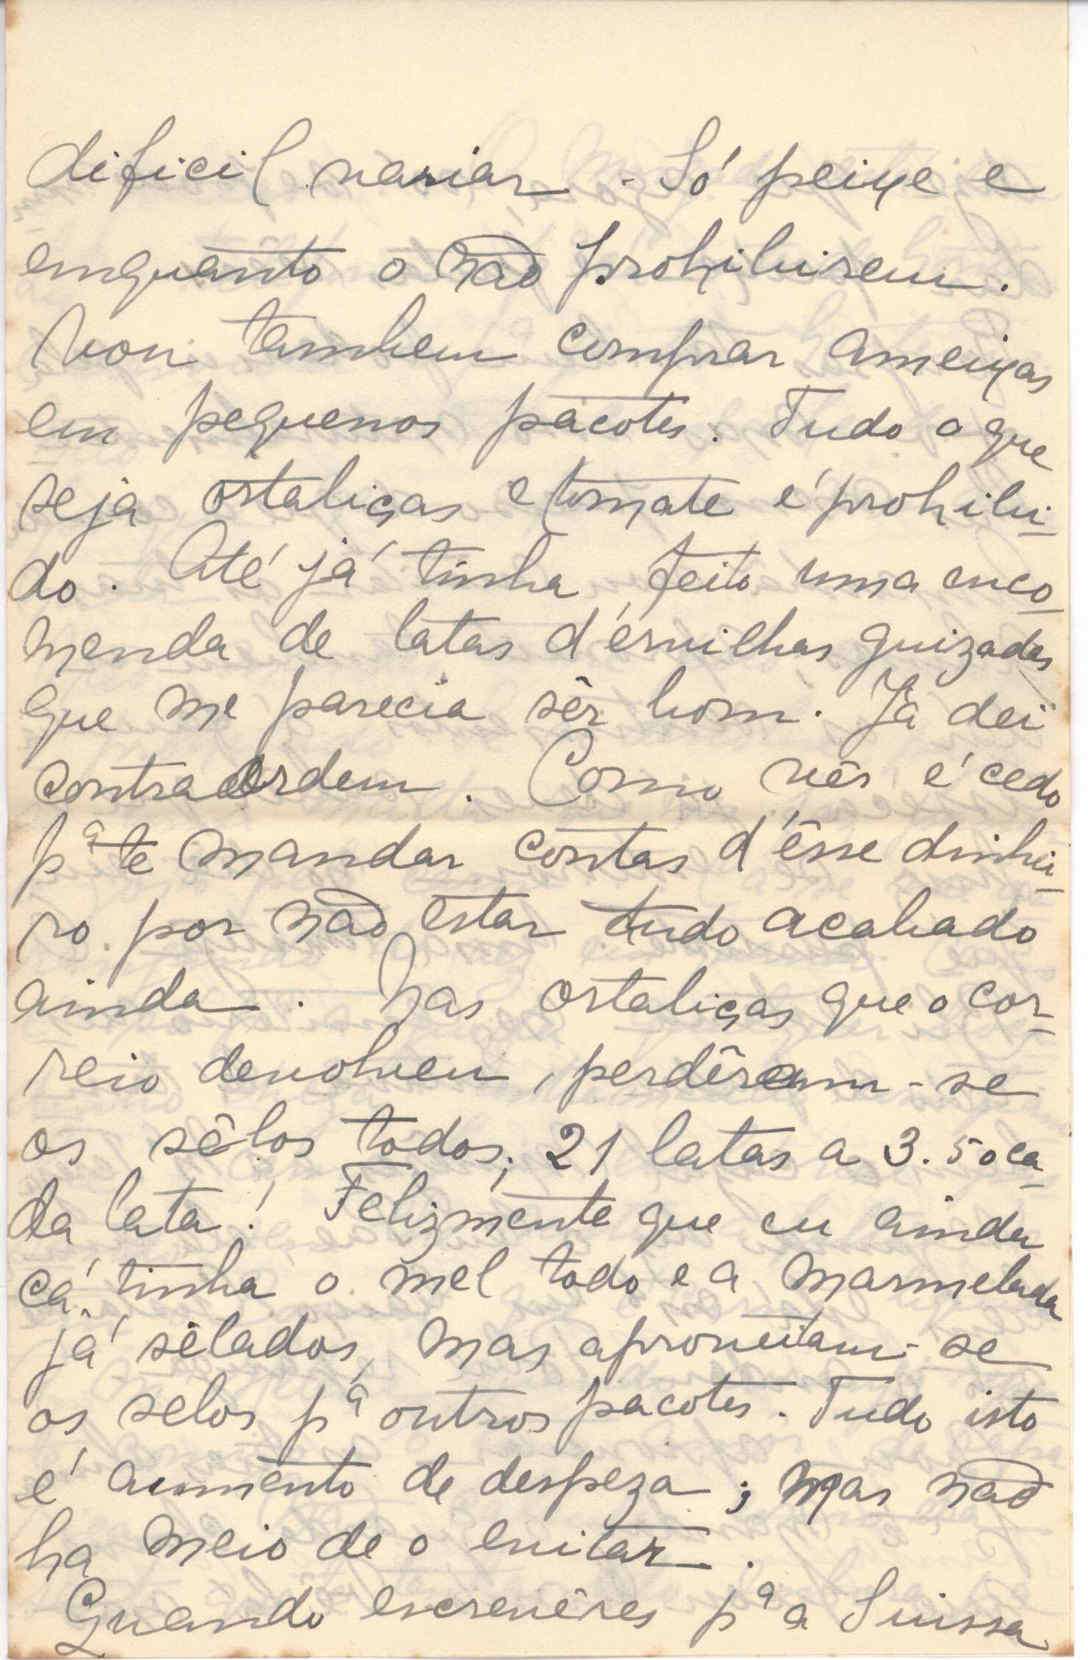 dificil variar. Só peixe e
emquanto o não prohibirem.
Vou tambem comprar ameixas
em pequenos pacotes. Tudo o que
seja ortaliças e tomate é prohibi-
do. Até já tinha feito uma enco-
menda de latas d'ervilhas guizadas
que me parecia sêr bom. Já dei
contraordem. Como vês é cedo
pª te mandar contas d'êsse dinhei-
ro por não estar tudo acabado
ainda. Nas ortaliças que o cor-
reio devolveu, perdêram-se
os sêlos todos; 21 latas a 3.50 ca-
da lata! Felizmente que eu ainda
cá tinha o mel todo e a marmelada
já sêlados, mas aproveitam-se
os selos pª outros pacotes. Tudo isto
é aumento de despeza; mas não
ha meio de o evitar.
Quando escrevêres pª a Suissa